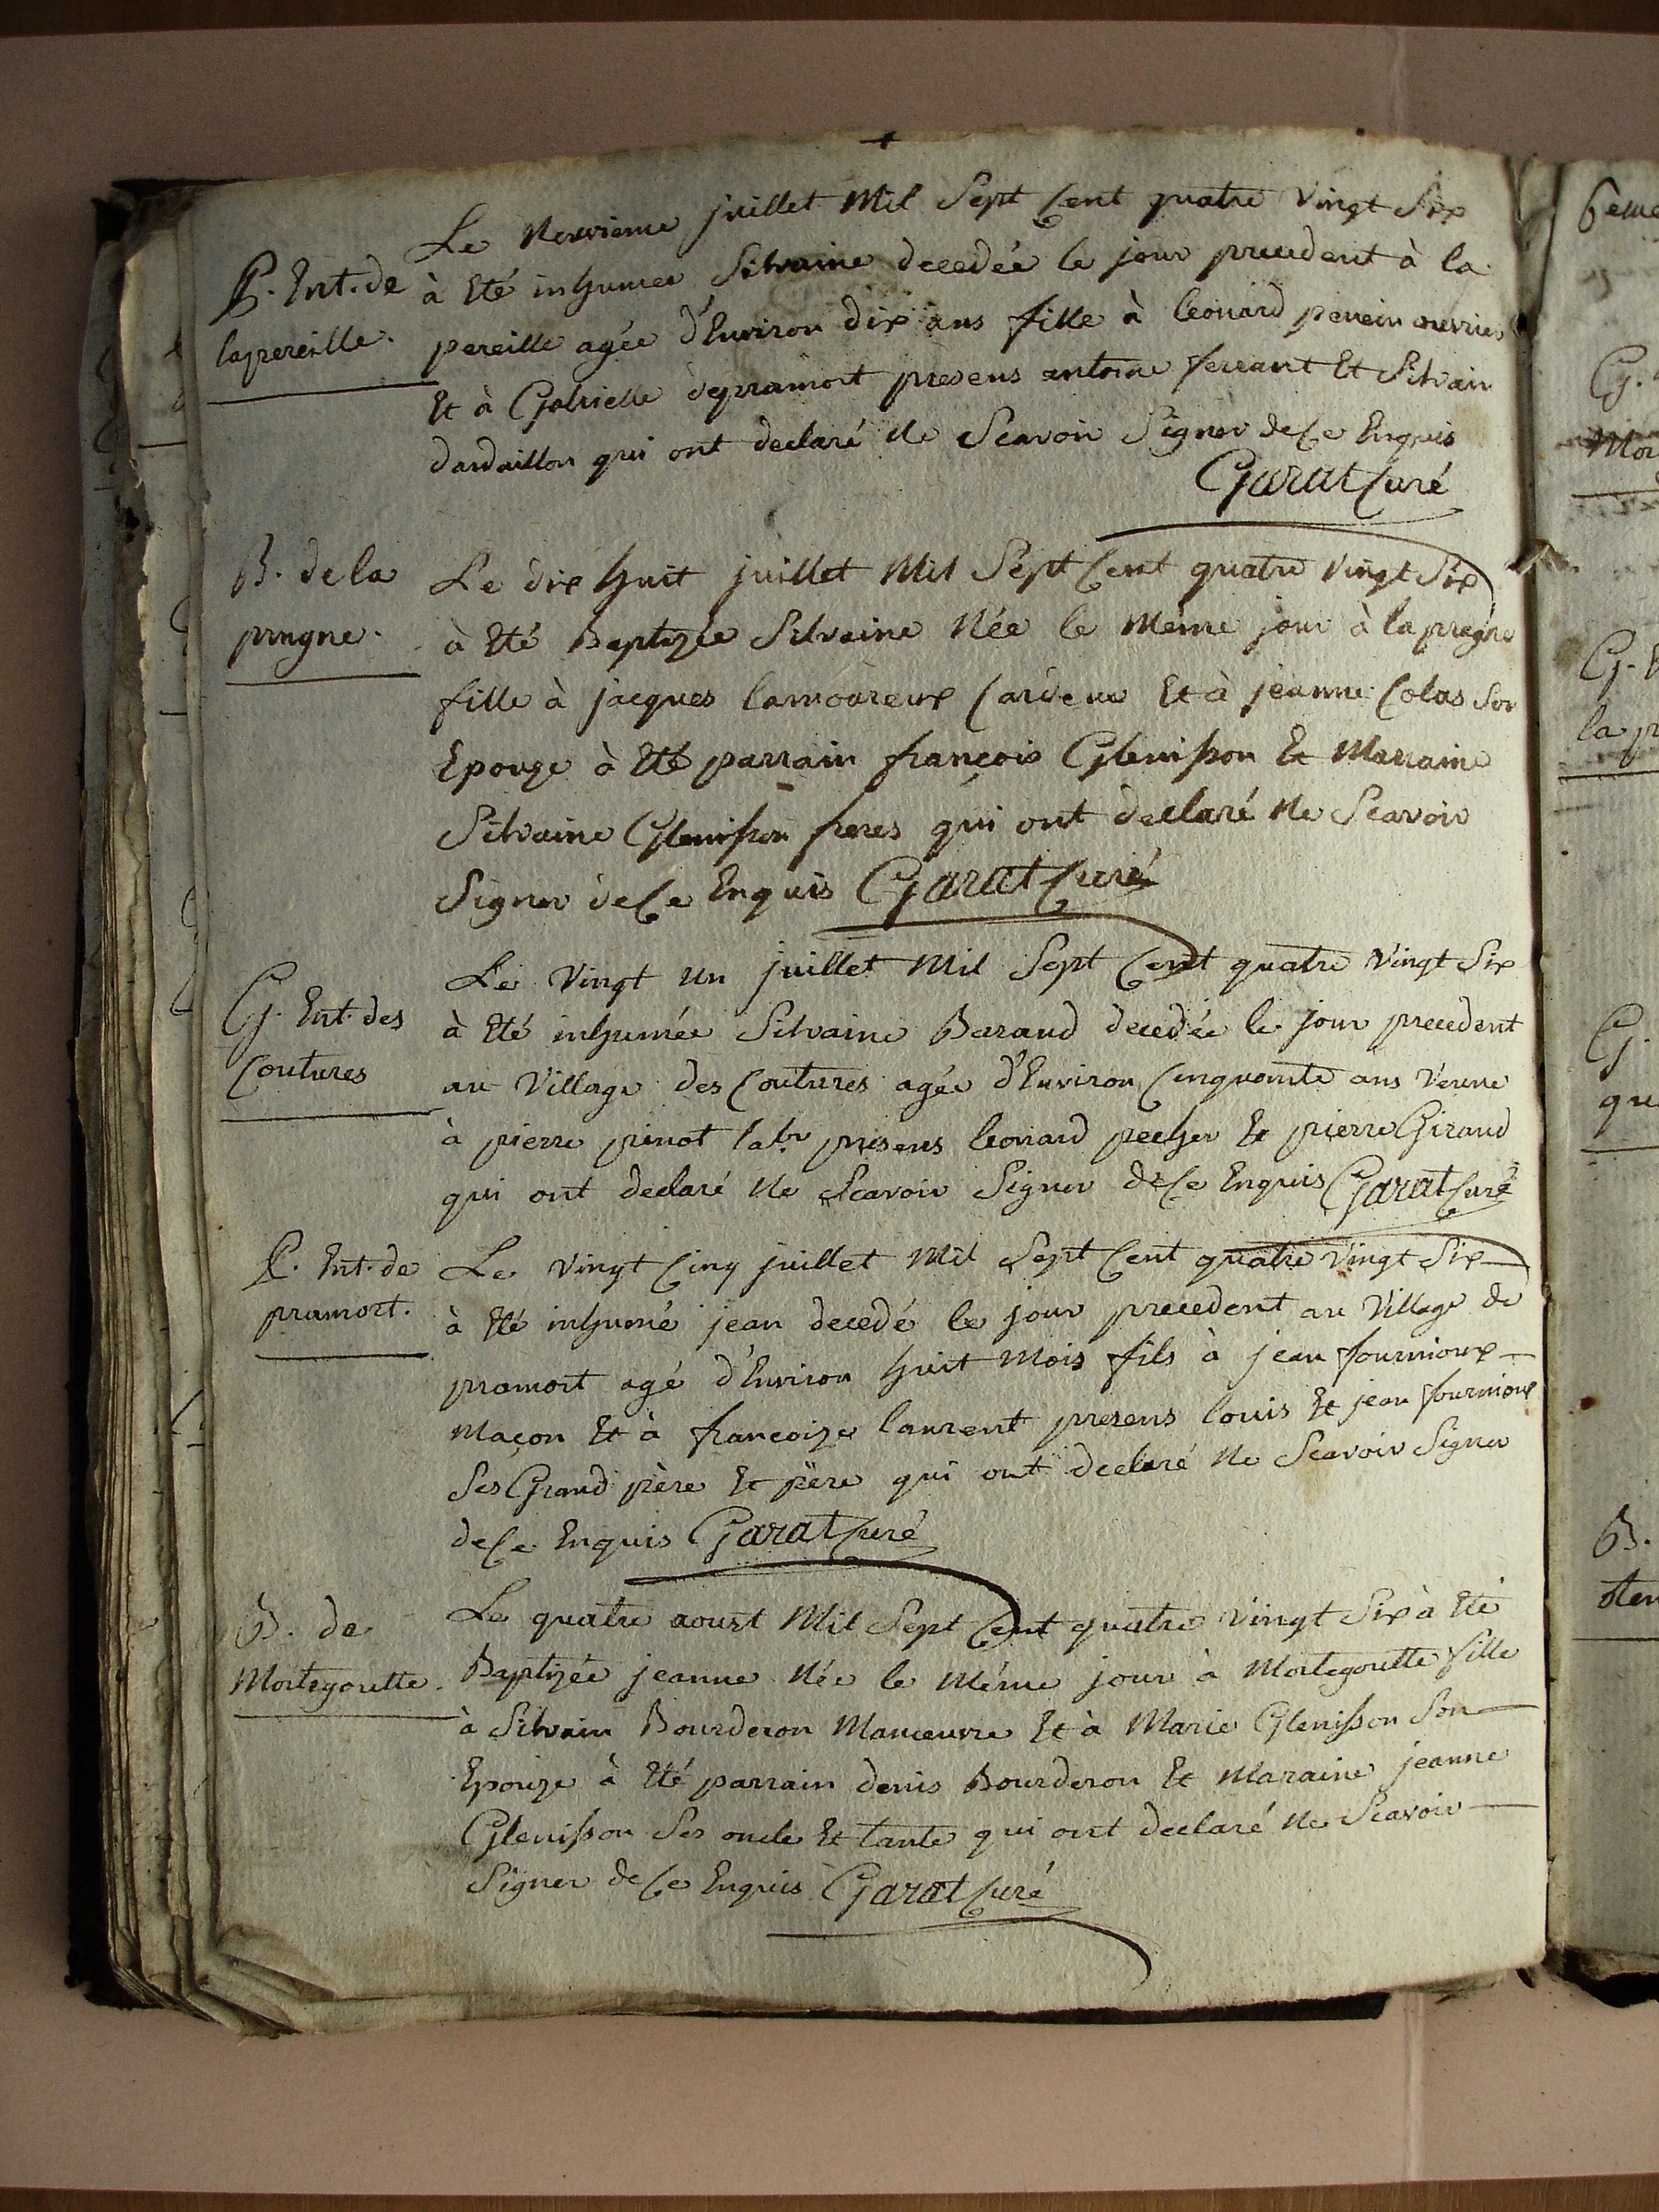 Le neuvieme juillet Mil Sept Cent quatre Vingt Six
P. Ent. de
lapereille.
à Eté inhumee Silvaine decedée le jour precedent à la
pereille agée d'Environ dix ans fille à leonard
Et à Gabrielle depramort presens antoine ferrant Et Silvain
dardaillon qui ont declaré Ne Scavoir Signer de Ce Enquis
Garat Curé
B. de la
prugne.
Le dix huit juillet Mil Sept Cent quatre Vingt Six
à Eté Baptizée Silvaine Née le Méme jour à la
fille à jacques lamoureux Et à jeanne Colas Son
Epouze à Eté parrain françois Glenisson Et Marraine
Silvaine Glenisson qui ont declaré Ne Scavoir
Signer de Ce Enquis Garat Curé
G. Ent. des
Coutures
Le Vingt un juillet Mil Sept Cent quatre Vingt Six
à Eté inhumée Silvaine Baraud decedée le jour precedent
au Village des Coutures agée d'Environ Cinquante ans Veuve
à pierre pinot labr presens leonard pecher Et pierre Giraud
qui ont declaré Ne Scavoir Signer de Ce Enquis Garat Curé
P. Ent. de
pramort.
Le Vingt Cinq juillet Mil Sept Cent quatre Vingt Six
à Eté inhumé jean decedé le jour precedent au Village de
pramort agé d'Environ huit Mois fils à jean fournioux
Maçon Et à françoize laurent presens louis Et jean fournioux
Ses Grand père Et père qui ont declaré Ne Scavoir Signer
de Ce Enquis Garat Curé
B. de
Mortegoutte.
Le quatre aoust Mil Sept Cent quatre Vingt Six à Eté
Baptizée jeanne Née le Méme jour à Mortegoutte fille
à Silvain Bourderon Manœuvre Et à Marie Glenisson Son
Epouze à Eté parrain denis Bourderon Et Maraine jeanne
Glenisson Ses oncle Et tante qui ont declaré Ne Scavoir
Signer de Ce Enquis Garat Curé